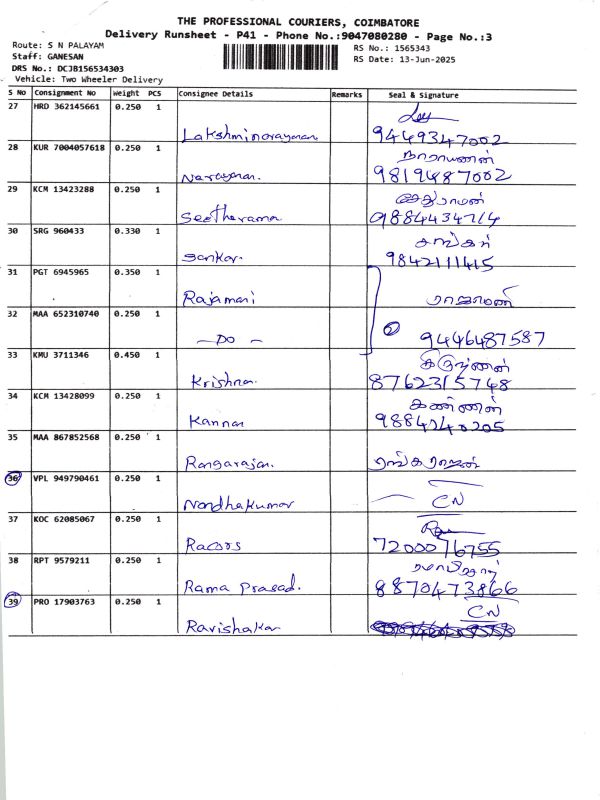 THE PROFESSIONAL COURIERS, COIMBATORE
Delivery Runsheet - P41 - Phone No.:9047080280 - Page No.:3
Route: S N PALAYAM
Staff: GANESAN
DRS No.: DCJ8156534303
Vehicle: Two Wheeler Delivery
RS No.: 1565343
RS Date: 13-Jun-2025
S No Consignment No Weight PCS Consignee Details Remarks Seal & Signature
27 HRD 362145661 0.250 1
Lakshminarayanan 9449347002
28 KUR 7004057618 0.250 1 நாராயணன்
Narayanan. 9819487002
29 KCM 13423288 0.250 1 சேதுராமன்
Seetharama 9884434714
30 SRG 960433 0.330 1 சங்கர்
Sankar. 9842111415
31 PGT 6945965 0.350 1
Rajamani ராஜாமணி
32 MAA 652310740 0.250 1
-DO- 2 9446487587
33 KMU 3711346 0.450 1
Krishna. 8762315748
34 KCM 13428099 0.250 1 கண்ணன்
Kannan 9884240205
35 MAA 867852568 0.250 1
Rangarajan. ரங்கராஜன்
36 VPL 949790461 0.250 1
Nandhakumar CN
37 KOC 62085067 0.250 1
7200076755
38 RPT 9579211 0.250 1
Rama Prasad. 8870473866
39 PRO 17903763 0.250 1 CN
Ravishakar